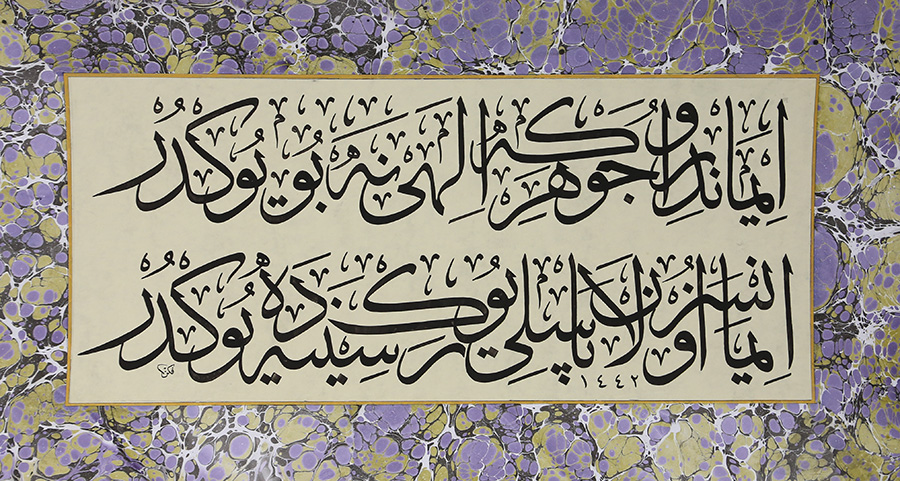 ایماندر او جوهر که الهی نه بویوكدر
ایمانسز اولان پاسلی یورك سینه ده یوكدر
١٤٤٢